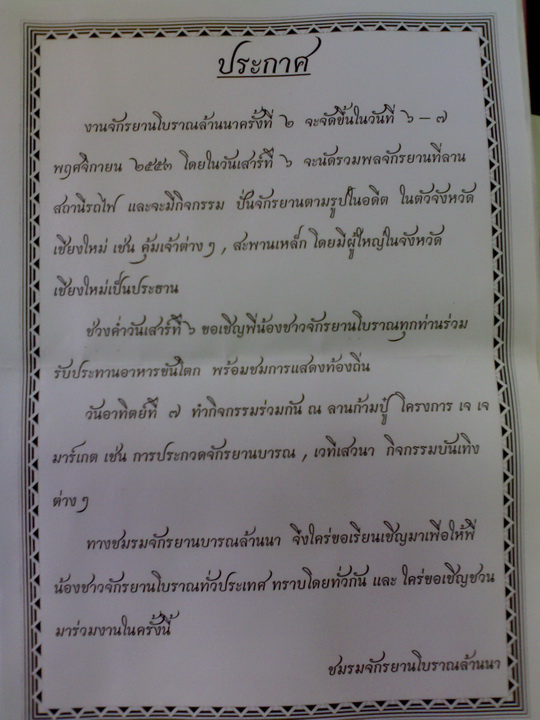 ประกาศ
งานจักรยานโบราณล้านนาครั้งที่ ๒ จะจัดขึ้นในวันที่ ๖ – ๗
พฤศจิกายน ๒๕๕๓ โดยในวันเสาร์ที่ ๖ จะนัดรวมพลจักรยานที่ลาน
สถานีรถไฟ และจะมีกิจกรรม ปั่นจักรยานตามรูปในอดีต ในตัวจังหวัด
เชียงใหม่ เช่น คุ้มเจ้าต่างๆ , สะพานเหล็ก โดยมีผู้ใหญ่ในจังหวัด
เชียงใหม่เป็นประธาน
ช่วงค่ำวันเสาร์ที่ ๖ ขอเชิญพี่น้องชาวจักรยานโบราณทุกท่านร่วม
รับประทานอาหารขันโตก พร้อมชมการแสดงท้องถิ่น
วันอาทิตย์ที่ ๗ ทำกิจกรรมร่วมกัน ณ ลานก้ามปู โครงการ เจ เจ
มาร์เกต เช่น การประกวดจักรยานบารณ , เวทีเสวนา กิจกรรมบันเทิง
ต่างๆ
ทางชมรมจักรยานบารณล้านนา จึงใคร่ขอเรียนเชิญมาเพื่อให้พี่
น้องชาวจักรยานโบราณทั่วประเทศ ทราบโดยทั่วกัน และ ใคร่ขอเชิญชวน
มาร่วมงานในครั้งนี้
ชมรมจักรยานโบราณล้านนา